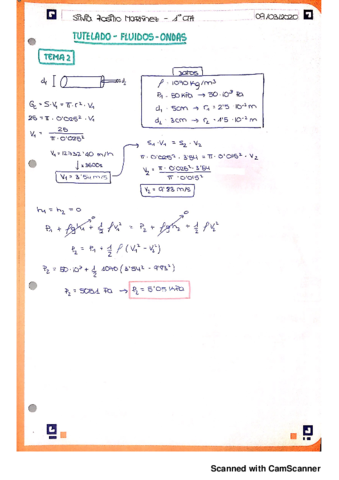 1ºCTA
09/03/2020
TUTELADO - FLUIDOS - ONDAS
TEMA 2
DATOS
ρ = 1040 kg/m³
P₁ = 50 kPa → 50·10³ Pa
d₁ = 5cm → r₁ = 2'5·10⁻² m
d₂ = 3cm → r₂ = 1'5·10⁻² m
d₁
G = S·V₁ = π·r²·V₁
25 = π·0'025²·V₁
V₁ = 25 / π·0'025²
V₁ = 12732'40 m/h
↓ ÷3600s
V₁ = 3'54 m/s
S₁·V₁ = S₂·V₂
π·0'025²·3'54 = π·0'015²·V₂
V₂ = π·0'025²·3'54 / π·0'015²
V₂ = 9'83 m/s
h₁ = h₂ = 0
P₁ + ρgh₁ + 1/2 ρV₁² = P₂ + ρgh₂ + 1/2 ρV₂²
P₂ = P₁ + 1/2 ρ (V₁² - V₂²)
P₂ = 50·10³ + 1/2 1040 (3'54² - 9'83²)
Scanned with CamScanner